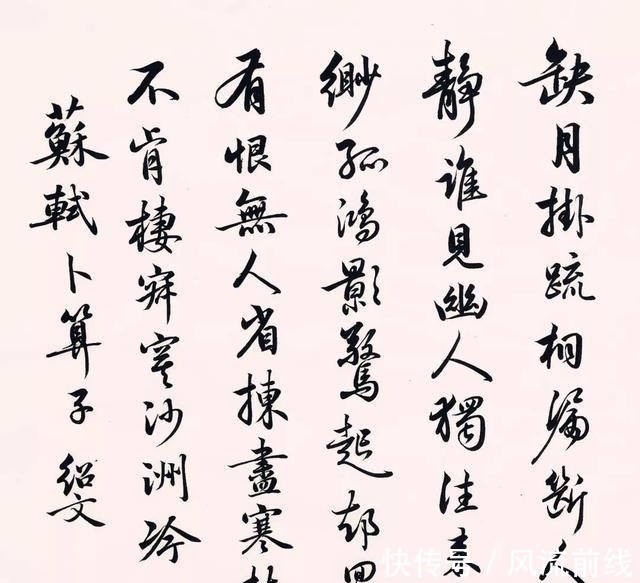 缺月掛疏桐漏斷
靜誰見幽人獨往來
緲孤鴻影驚起却回
有恨無人省揀盡寒枝
不肯棲寂寞沙洲冷
蘇軾卜算子 紹文
快传号 / 风流前线